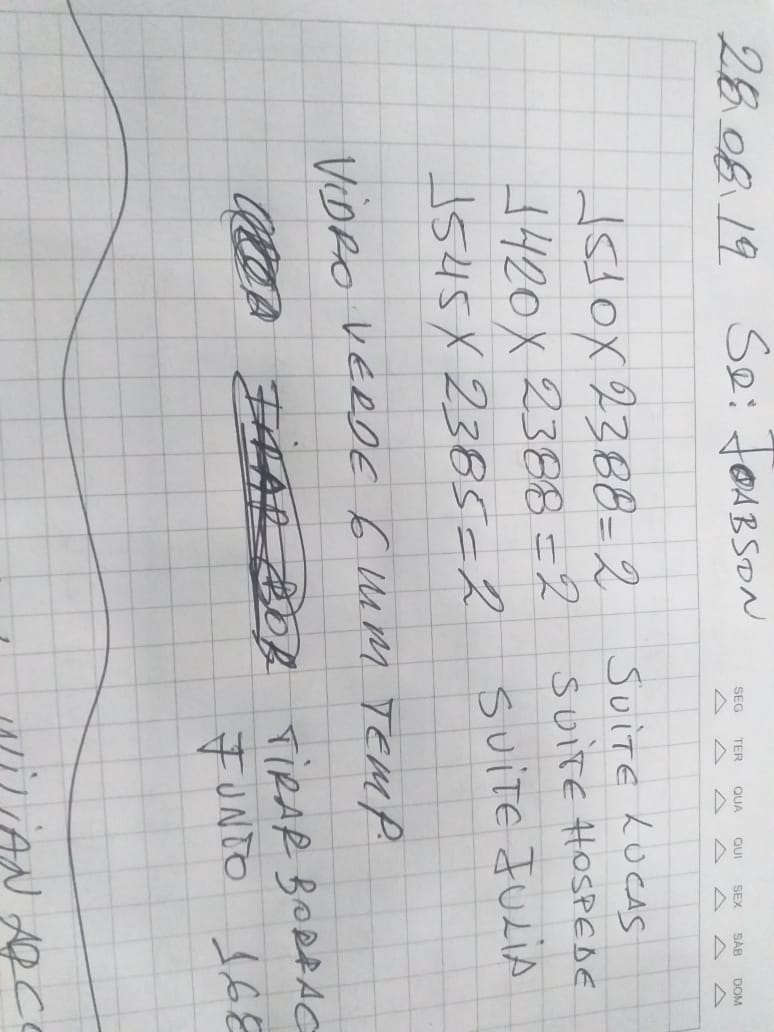 28.08.19 SR: JOABSON
SEG TER QUA QUI SEX SÁB DOM
1510 X 2388 = 2 SUITE LUCAS
1420 X 2388 = 2 SUITE HOSPEDE
1545 X 2385 = 2 SUITE JULIA
VIDRO VERDE 6 MM TEMP.
TIRAR BORRAC
JUNTO 168
WILIAN